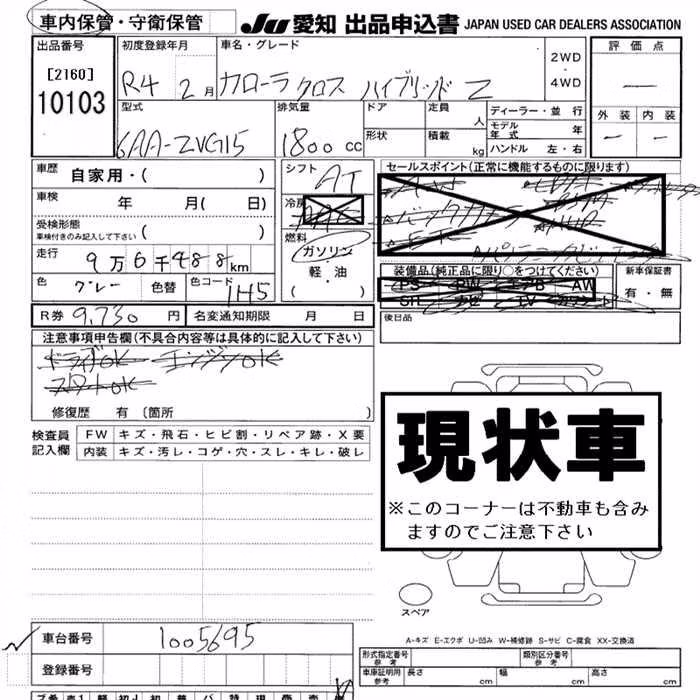 車内保管・守衛保管
JU 愛知 出品申込書 JAPAN USED CAR DEALERS ASSOCIATION
出品番号
[2160]
10103
初度登録年月
R4 2月
車名・グレード
カローラクロス ハイブリッド Z
2WD
・
4WD
評価点
—
外装 内装
— —
型式
6AA-ZVG15
排気量
1800cc
ドア
形状
定員 人
積載 kg
ディーラー・並行
モデル年式 年
ハンドル 左・右
車歴 自家用・( )
車検 年 月( 日)
受検形態
車検付きのみ記入して下さい ( )
走行
9万6千488km
色 グレー 色替 色コード 1H5
シフト AT
冷房
燃料
ガソリン
軽・油
・( )
セールスポイント(正常に機能するものに限ります)
装備品(純正品に限り○をつけてください)
PS PW エアB AW
SR ナビ TV カワシート
新車保証書
有・無
後日品
R券 9,730円 名変通知期限 月 日
注意事項申告欄(不具合内容等は具体的に記入して下さい)
ドライブOK エンジンOK
スタートOK
修復歴 有〔箇所 〕
検査員記入欄
FW キズ・飛石・ヒビ割・リペア跡・X要
内装 キズ・汚レ・コゲ・穴・スレ・キレ・破レ
現状車
※このコーナーは不動車も含み
ますのでご注意下さい
スペア
A-キズ E-エクボ U-凹み W-補修跡 S-サビ C-腐食 XX-交換済
車台番号 1005695
登録番号
型式指定番号 参考
類別区分番号 参考
車庫証明用 参考 長さ cm 幅 cm 高さ cm